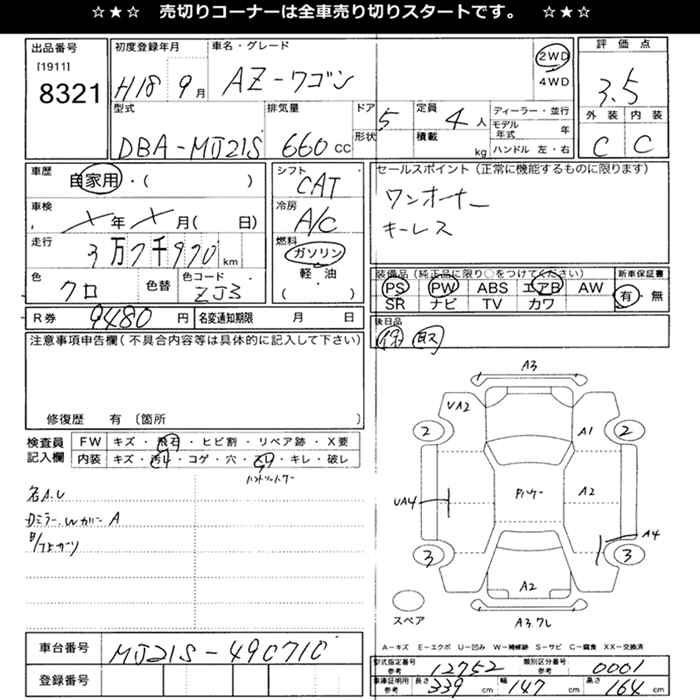 ☆★☆ 売切りコーナーは全車売り切りスタートです。 ☆★☆
出品番号 初度登録年月 車名・グレード 評価点
[1911]
8321 H18年9月 AZ-ワゴン 2WD 4WD 3.5
型式 排気量 ドア 形状 定員 積載 ディーラー・並行 モデル年式 年 ハンドル 左・右 外装 内装
DBA-MJ21S 660cc 5 4人 kg C C
車歴 自家用・( ) シフト CAT セールスポイント(正常に機能するものに限ります)
ワンオーナー
キーレス
車検 年 月( 日) 冷房 A/C
走行 3万7千970km 燃料 ガソリン 軽油 ( )
色 クロ 色替 色コード ZJ3
装備品(純正品に限り○をつけてください) 新車保証書
PS PW ABS エアB AW 有・無
SR ナビ TV カワ
R券 9480円 名変通知期限 月 日
後日品 保 取
注意事項申告欄(不具合内容等は具体的に記入して下さい)
修復歴 有 〔箇所 〕
検査員記入欄 FW キズ・飛石・ヒビ割・リペア跡・X要
内装 キズ・汚れ・コゲ・穴・スレ・キレ・破レ
A3
VA2 A1
2 2
UA4 A2 A4
3 3
A2
スペア
A-キズ E-エクボ U-凹み W-補修跡 S-サビ C-腐食 XX-交換済
車台番号 MJ21S-490710
登録番号
型式指定番号 参考 12752 類別区分番号 参考 0001
車庫証明用 参考 長さ 339cm 幅 147cm 高さ 164cm